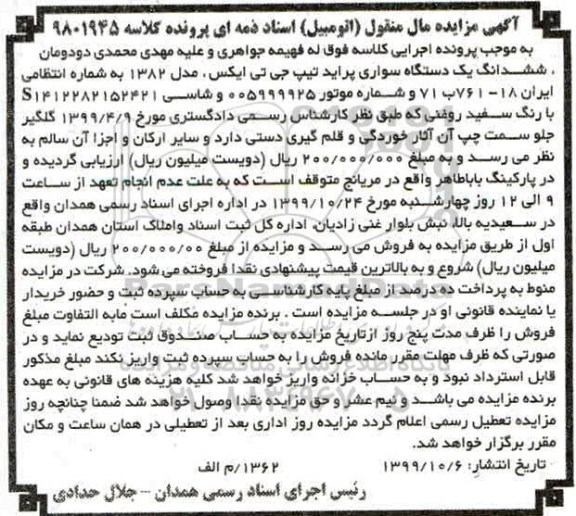 آگهی مزایده مال منقول (اتومبیل) اسناد ذمه ای پرونده کلاسه ۹۸۰۱۹۴۵
به موجب پرونده اجرایی کلاسه فوق له فهیمه جواهری و علیه مهدی محمدی دودومان
، ششدانگ یک دستگاه سواری پراید تیپ جی تی ایکس ، مدل ۱۳۸۲ به شماره انتظامی
ایران ۱۸- ۷۶۱ب ۷۱ و شماره موتور ۰۰۵۹۹۹۹۲۵ و شاسی S۱۴۱۲۲۸۲۱۵۲۴۲۱
با رنگ سفید روغنی که طبق نظر کارشناس رسمی دادگستری مورخ ۱۳۹۹/۴/۹ گلگیر
جلو سمت چپ آن آثار خوردگی و قلم گیری دستی دارد و سایر ارکان و اجزا آن سالم به
نظر می رسد و به مبلغ ۲۰۰/۰۰۰/۰۰۰ ریال (دویست میلیون ریال) ارزیابی گردیده و
در پارکینگ باباطاهر واقع در مریانج متوقف است که به علت عدم انجام تعهد از ساعت
۹ الی ۱۲ روز چهارشنبه مورخ ۱۳۹۹/۱۰/۲۴ در اداره اجرای اسناد رسمی همدان واقع
در سعیدیه بالا، نبش بلوار غنی زادیان، اداره کل ثبت اسناد واملاک استان همدان طبقه
اول از طریق مزایده به فروش می رسد و مزایده از مبلغ ۲۰۰/۰۰۰/۰۰ ریال (دویست
میلیون ریال) شروع و به بالاترین قیمت پیشنهادی نقدا فروخته می شود. شرکت در مزایده
منوط به پرداخت ده درصد از مبلغ پایه کارشناسی به حساب سپرده ثبت و حضور خریدار
یا نماینده قانونی او در جلسه مزایده است . برنده مزایده مکلف است مابه التفاوت مبلغ
فروش را ظرف مدت پنج روز ازتاریخ مزایده به حساب صندوق ثبت تودیع نماید و در
صورتی که ظرف مهلت مقرر مانده فروش را به حساب سپرده ثبت واریز نکند مبلغ مذکور
قابل استرداد نبود و به حساب خزانه واریز خواهد شد کلیه هزینه های قانونی به عهده
برنده مزایده می باشد و نیم عشر و حق مزایده نقدا وصول خواهد شد ضمنا چنانچه روز
مزایده تعطیل رسمی اعلام گردد مزایده روز اداری بعد از تعطیلی در همان ساعت و مکان
مقرر برگزار خواهد شد.
تاریخ انتشار: ۱۳۹۹/۱۰/۶ ۱۳۶۲/م الف
رئیس اجرای اسناد رسمی همدان – جلال حدادی